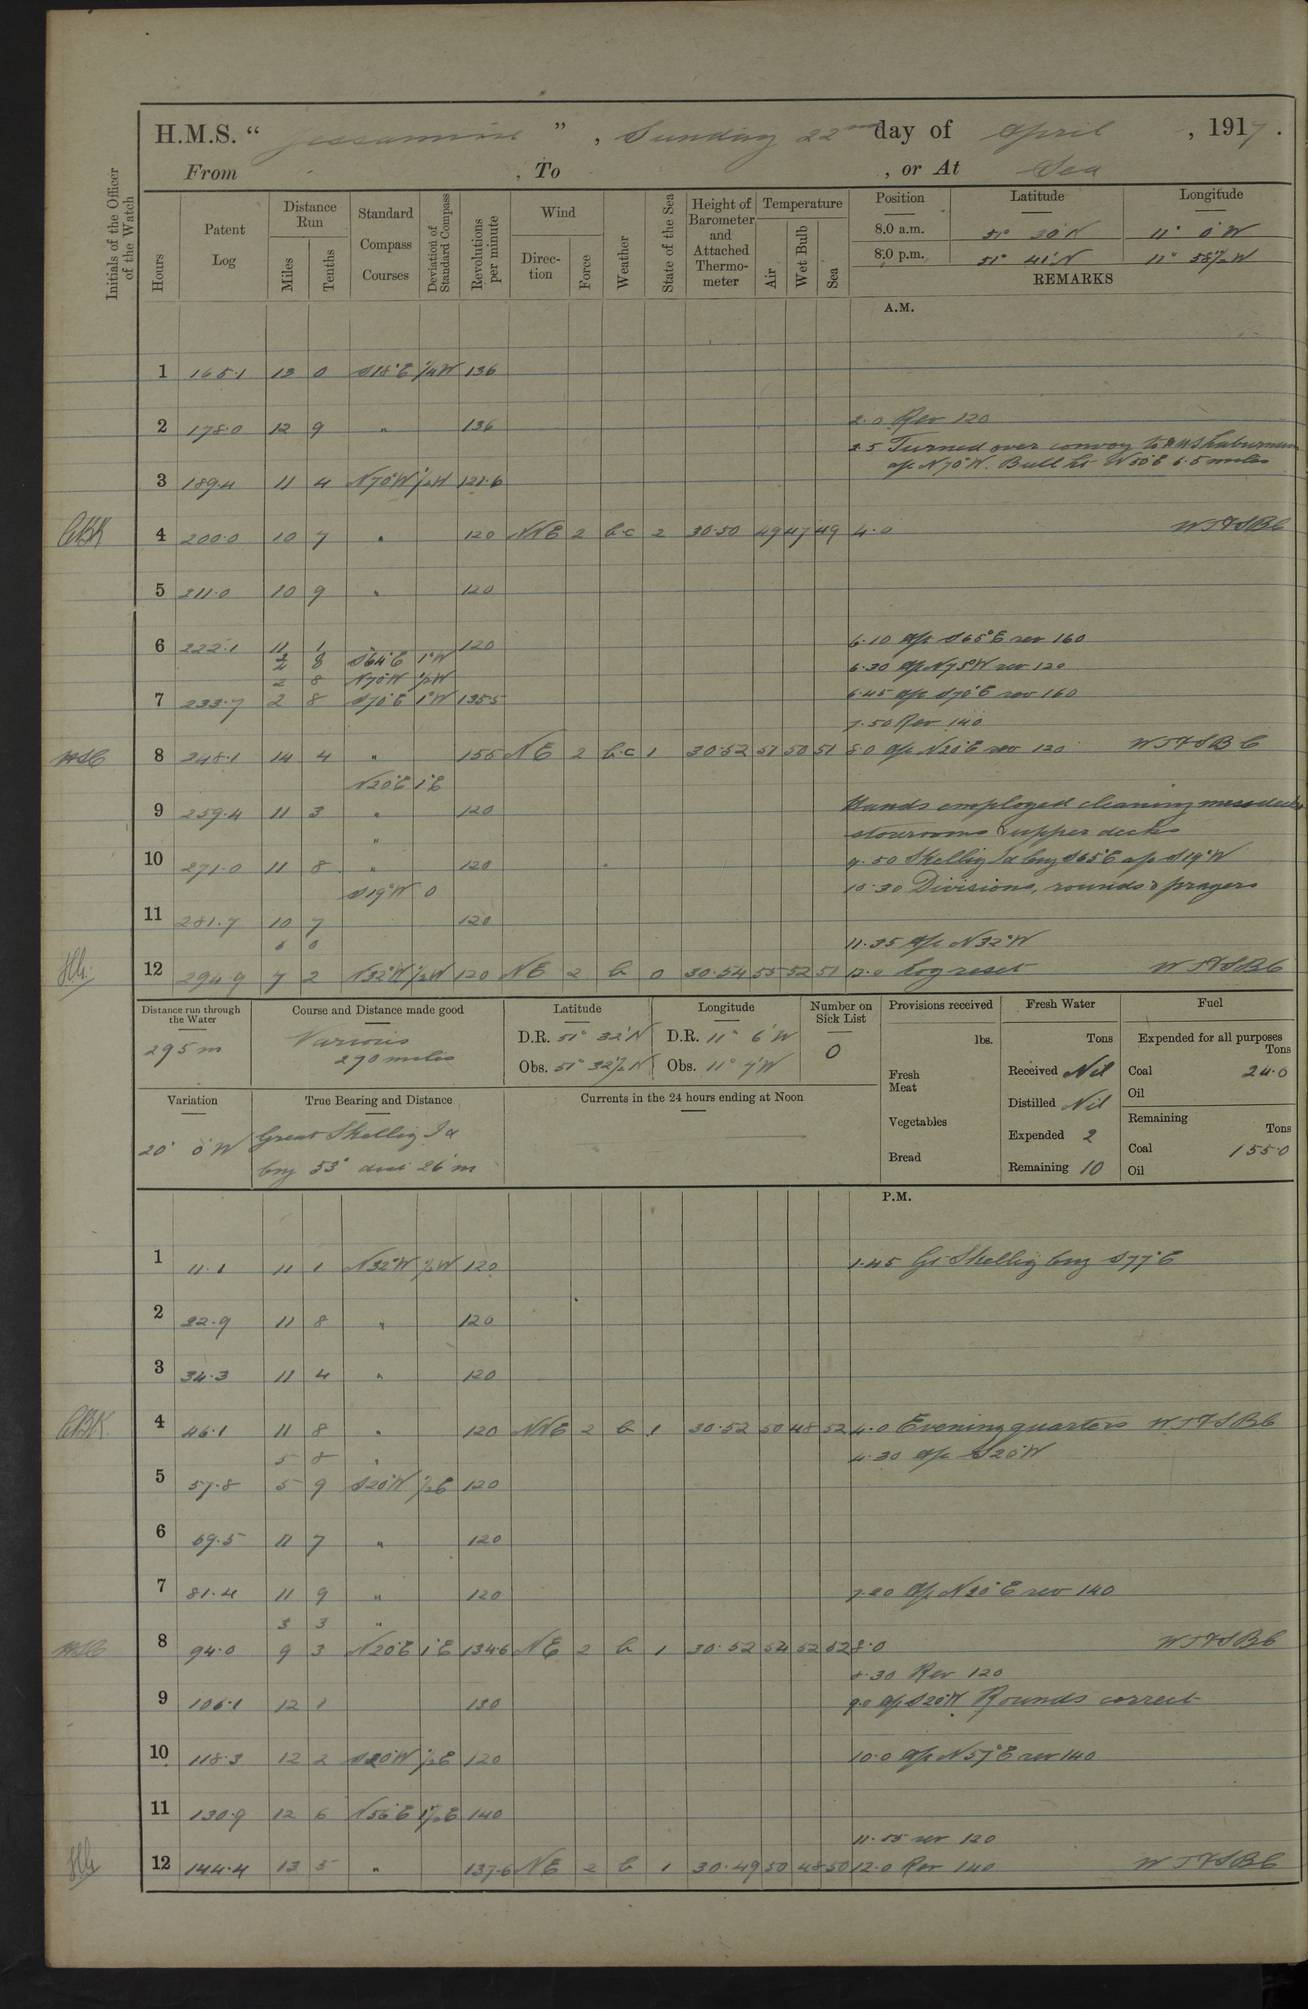 H.M.S. “ Jessamine ” , Sunday 22nd day of April , 1917.
From , To , or At Sea
Initials of the Officer of the Watch
Hours
Patent Log
Distance Run
Miles
Tenths
Standard Compass Courses
Deviation of Standard Compass
Revolutions per minute
Wind
Direction
Force
Weather
State of the Sea
Height of Barometer and Attached Thermometer
Temperature
Air
Wet Bulb
Sea
Position Latitude Longitude
8.0 a.m. 51° 20'N 11° 0'W
8.0 p.m. 51° 41'N 11° 58½W
REMARKS
A.M.
1 165.1 13 0 S18°E ¼W 136
2 178.0 12 9 " 136
2.0 Rev 120
2.5 Turned over convoy to HMS Laburnum
a/c N70°W. Bull Lt N50E 6.5 miles
3 189.4 11 4 N70°W ½W 121.6
4 200.0 10 7 " 120 NNE 2 b.c 2 30.50 49 47 49 4.0
5 211.0 10 9 " 120
6 222.1 11 1 120
6.10 a/c S65°E rev 160
2 8 S64°E 1°W
6.30 a/c N75°W rev 120
2 8 N70W ½W
7 233.7 2 8 S70°E 1°W 135.5
6.45 a/c S70°E rev 160
7.50 Rev 140
8 248.1 14 4 " 155 NE 2 b.c 1 30.52 51 50 51 8.0 a/c N20°E rev 120
N20°E 1°E
9 259.4 11 3 " 120
Hands employed cleaning messdecks
storerooms & upper decks
10 271.0 11 8 " 120
9.50 Skellig Id brg S65°E a/c S19°W
S19°W 0
10.30 Divisions, rounds & prayers
11 281.7 10 7 120
6 0
11.35 a/c N32°W
12 294.9 7 2 N32°W ½W 120 NE 2 b 0 30.54 55 52 51 12.0 Log reset
Distance run through the Water
295m
Course and Distance made good
Various
270 miles
Latitude
D.R. 51° 32'N
Obs. 51° 32½N
Longitude
D.R. 11° 6'W
Obs. 11° 7'W
Number on Sick List
0
Provisions received
lbs.
Fresh Meat
Vegetables
Bread
Fresh Water
Tons
Received Nil
Distilled Nil
Expended 2
Remaining 10
Fuel
Expended for all purposes
Tons
Coal 24.0
Oil
Remaining
Tons
Coal 155.0
Oil
Variation
20° 0'W
True Bearing and Distance
Great Skellig Id
brg 53° dist 26'm
Currents in the 24 hours ending at Noon
P.M.
1 11.1 11 1 N32°W ½W 120
1.45 Gt Skellig brg S77°E
2 22.9 11 8 " 120
3 34.3 11 4 " 120
4 46.1 11 8 " 120 NNE 2 b 1 30.52 50 48 52 4.0 Evening quarters
5 8 "
4.30 a/c S20°W
5 57.8 5 9 S20°W ½E 120
6 69.5 11 7 " 120
7 81.4 11 9 " 120
7.20 a/c N20°E rev 140
3 3 "
8 94.0 9 3 N20°E 1°E 134.6 NE 2 b 1 30.52 54 52 52 8.0
8.30 Rev 120
9 106.1 12 1 130
9.0 a/c S20°W. Rounds correct
10 118.3 12 2 S20°W ½E 120
10.0 a/c N57°E rev 140
11 130.9 12 6 N56°E 1½E 140
11.55 rev 120
12 144.4 13 5 " 137.6 NE 2 b 1 30.49 50 48 50 12.0 Rev 140